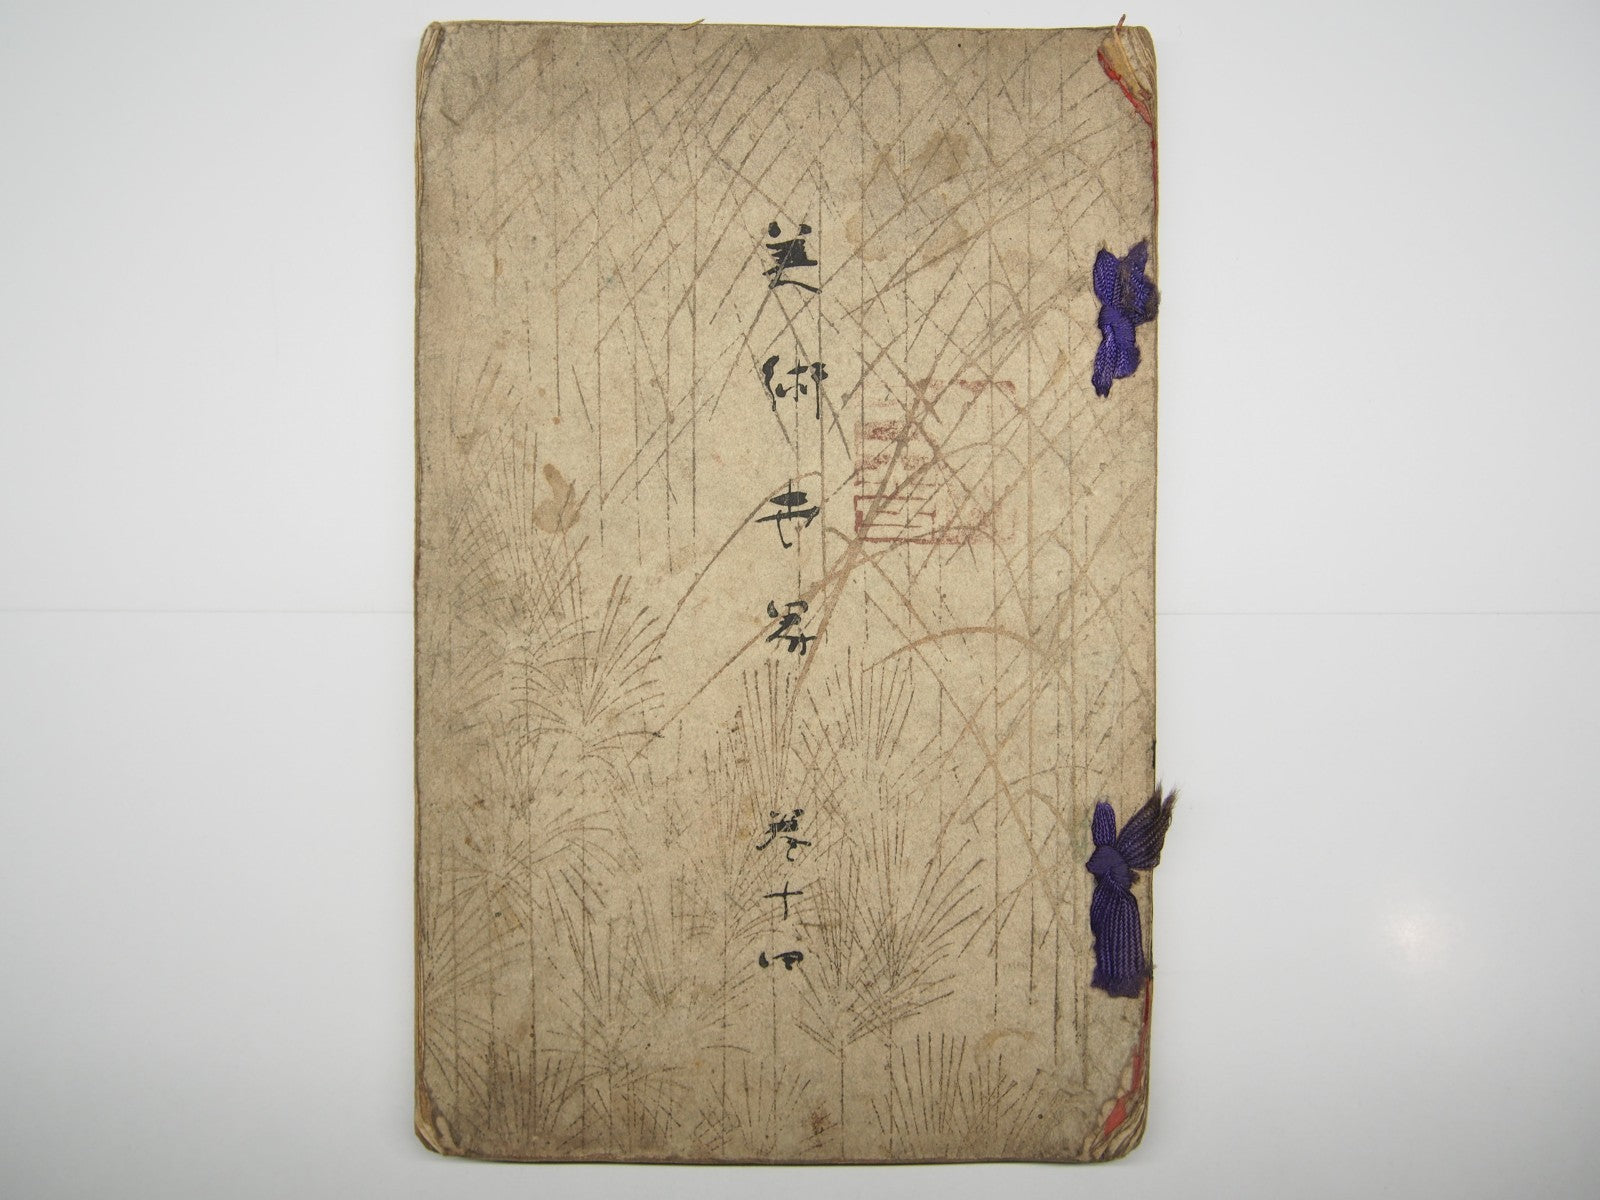 美術世界 巻十四